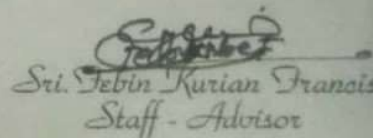 Sri. Febin Kurian Francis
Staff - Advisor